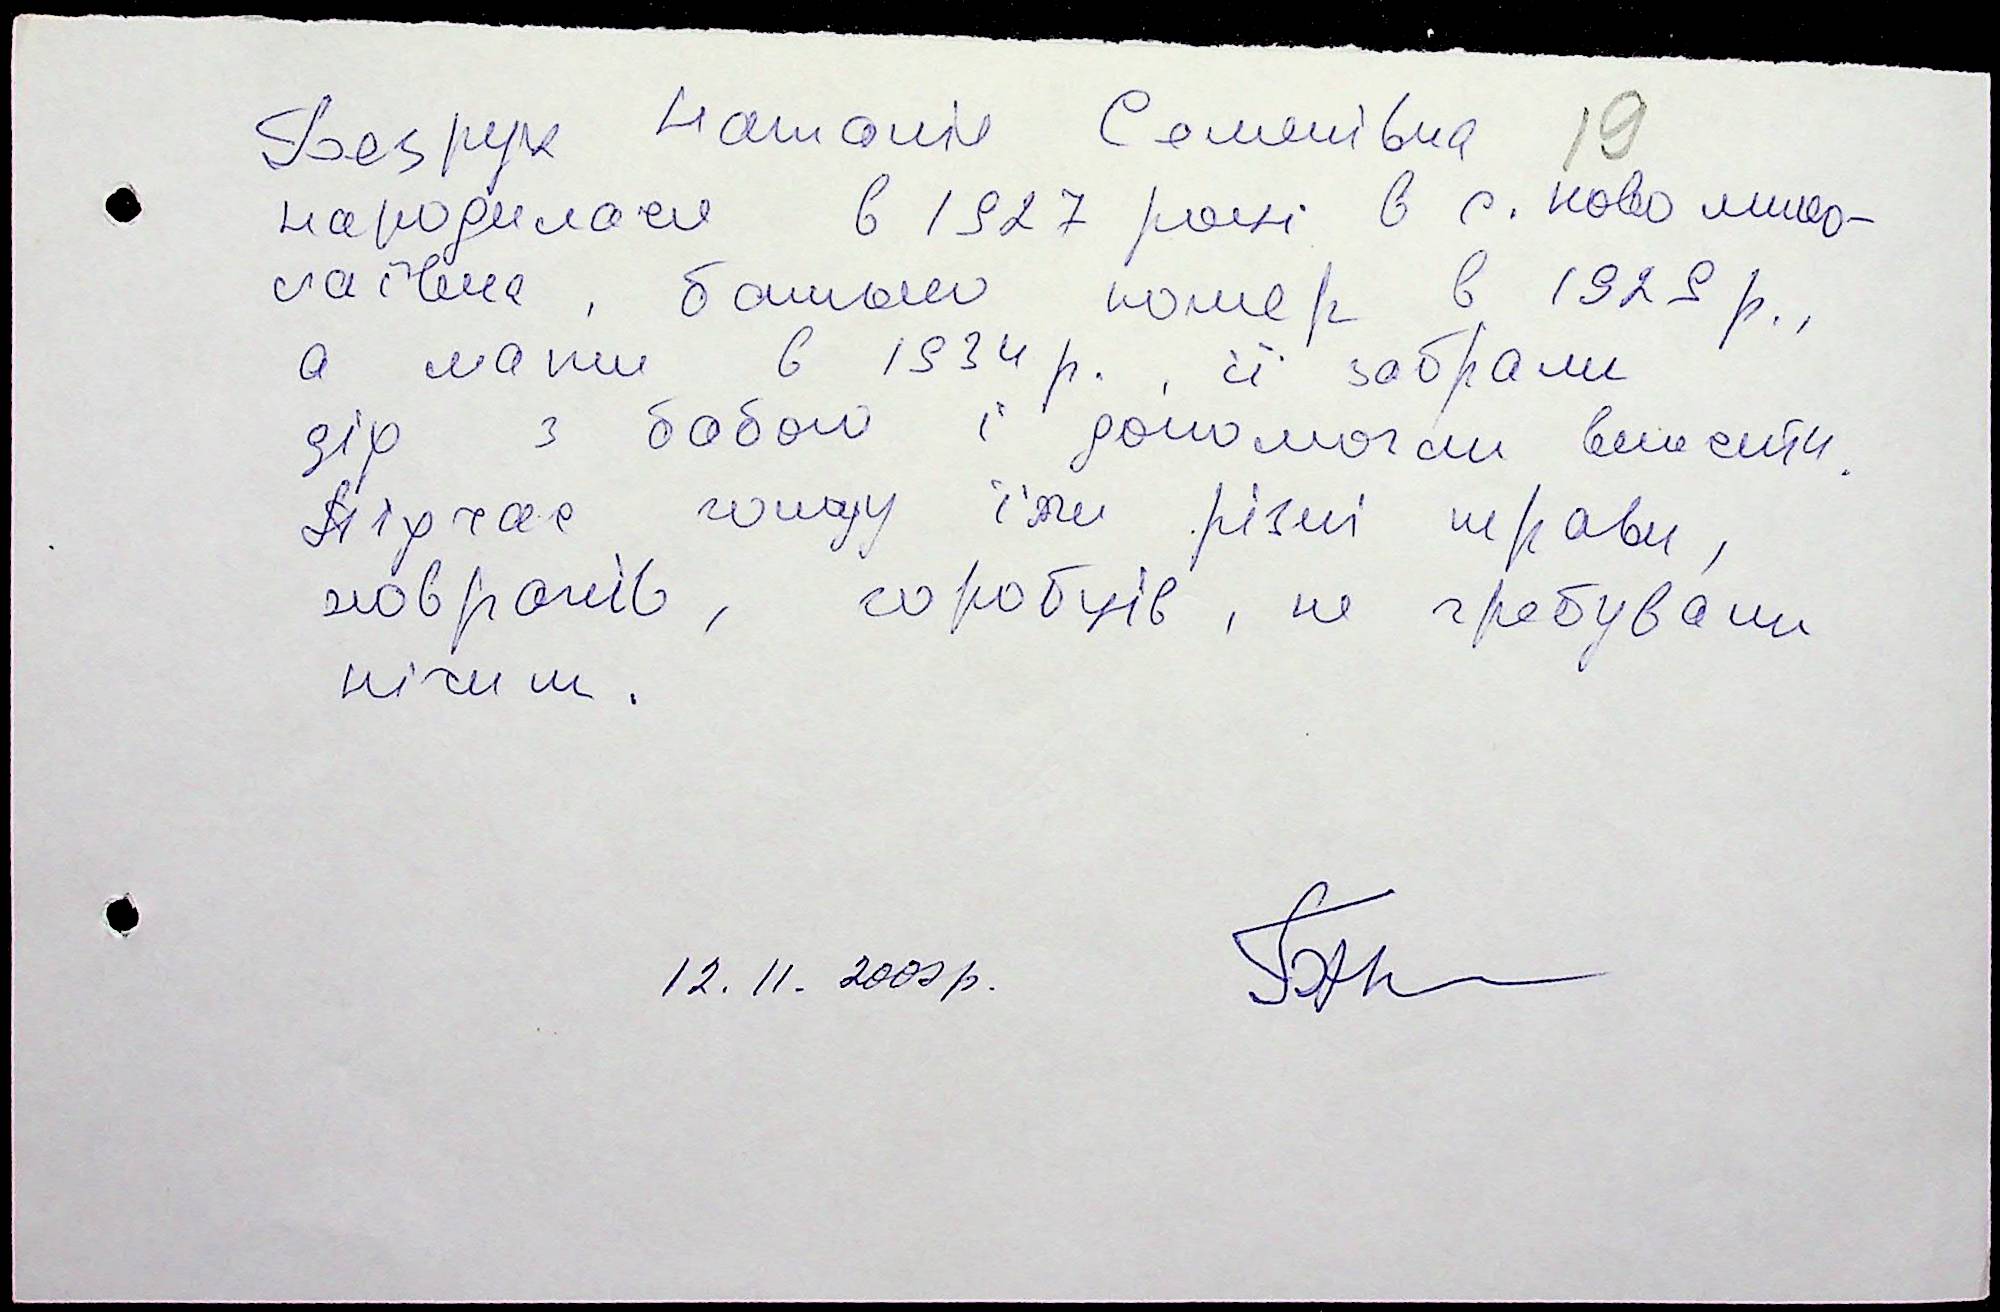 Безрук Наталія Семенівна 19
народилася в 1927 році в с. Новомико-
лаївка, батько помер в 1929 р.,
а мати в 1934 р., її забрали
дід з бабою і допомогли вижити.
Під час голоду їли різні трави,
ховрахів, горобців, не гребували
нічим.
12. 11. 2008 р.